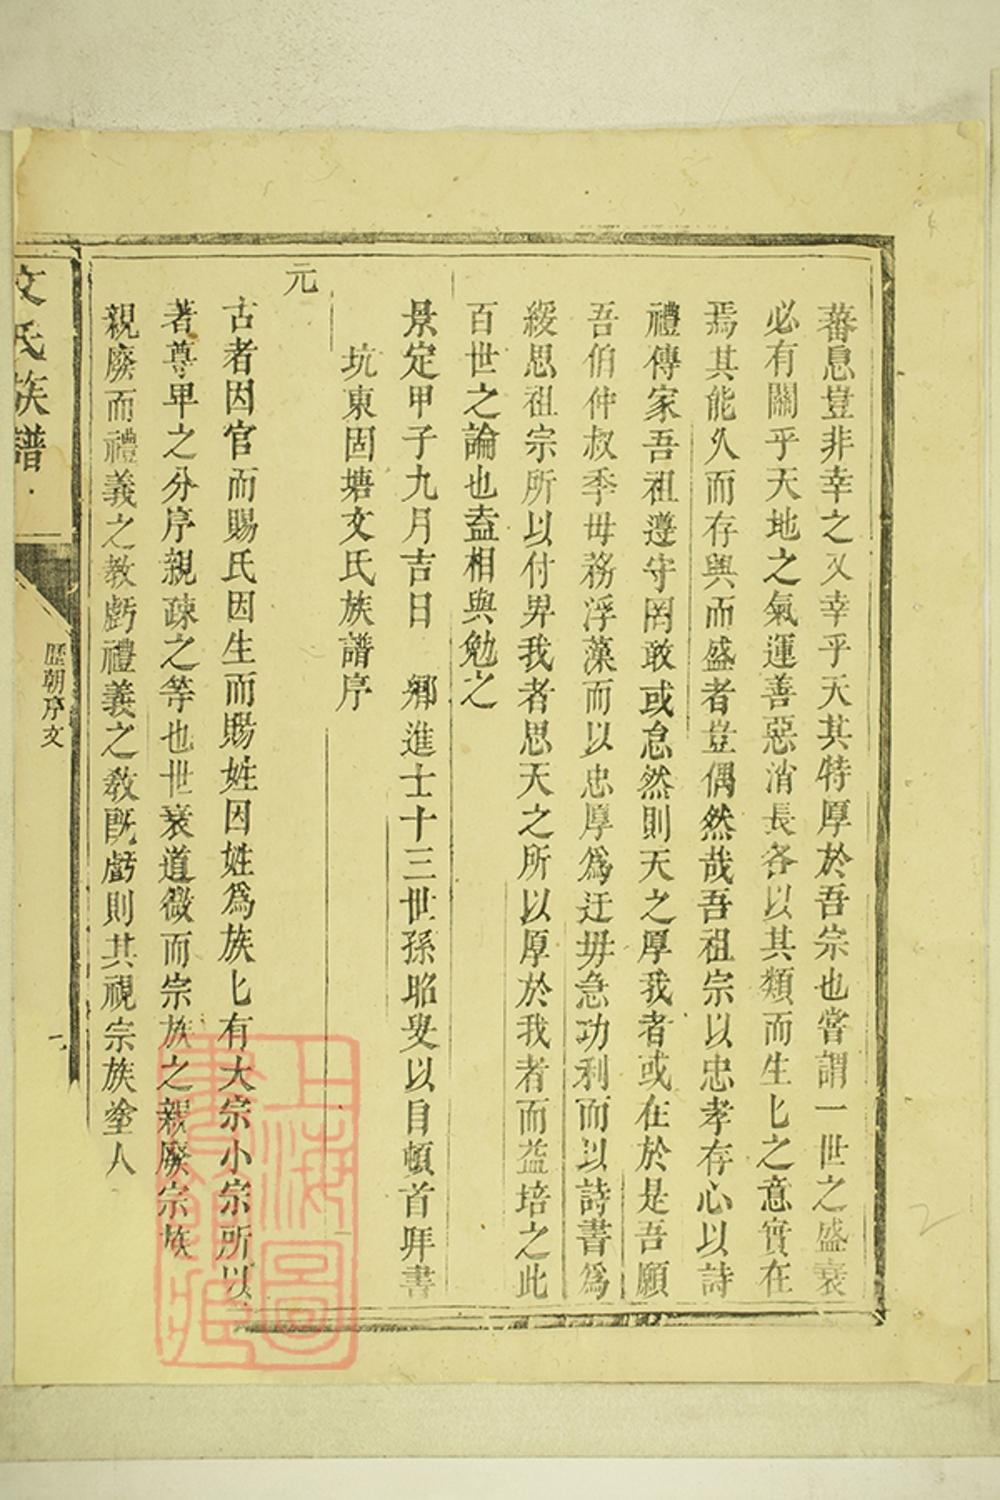 蕃息豈非幸之又幸乎天其特厚於吾宗也嘗謂一世之盛衰
必有關乎天地之氣運善惡消長各以其類而生匕之意實在
焉其能久而存與而盛者豈偶然哉吾祖宗以忠孝存心以詩
禮傳家吾祖遵守罔敢或怠然則天之厚我者或在於是吾願
吾伯仲叔季毋務浮藻而以忠厚爲迂毋急功利而以詩書爲
緩思祖宗所以付畀我者思天之所以厚於我者而益培之此
百世之論也盍相與勉之
景定甲子九月吉日 鄉進士十三世孫昭叟以自頓首拜書
坑東固塘文氏族譜序
元
古者因官而賜氏因生而賜姓因姓爲族匕有大宗小宗所以
著尊卑之分序親疎之等也世衰道微而宗族之親廢宗族
親廢而禮義之教虧禮義之教既虧則其視宗族塗人
文氏族譜
歷朝序文
一
上海圖
書館藏
2